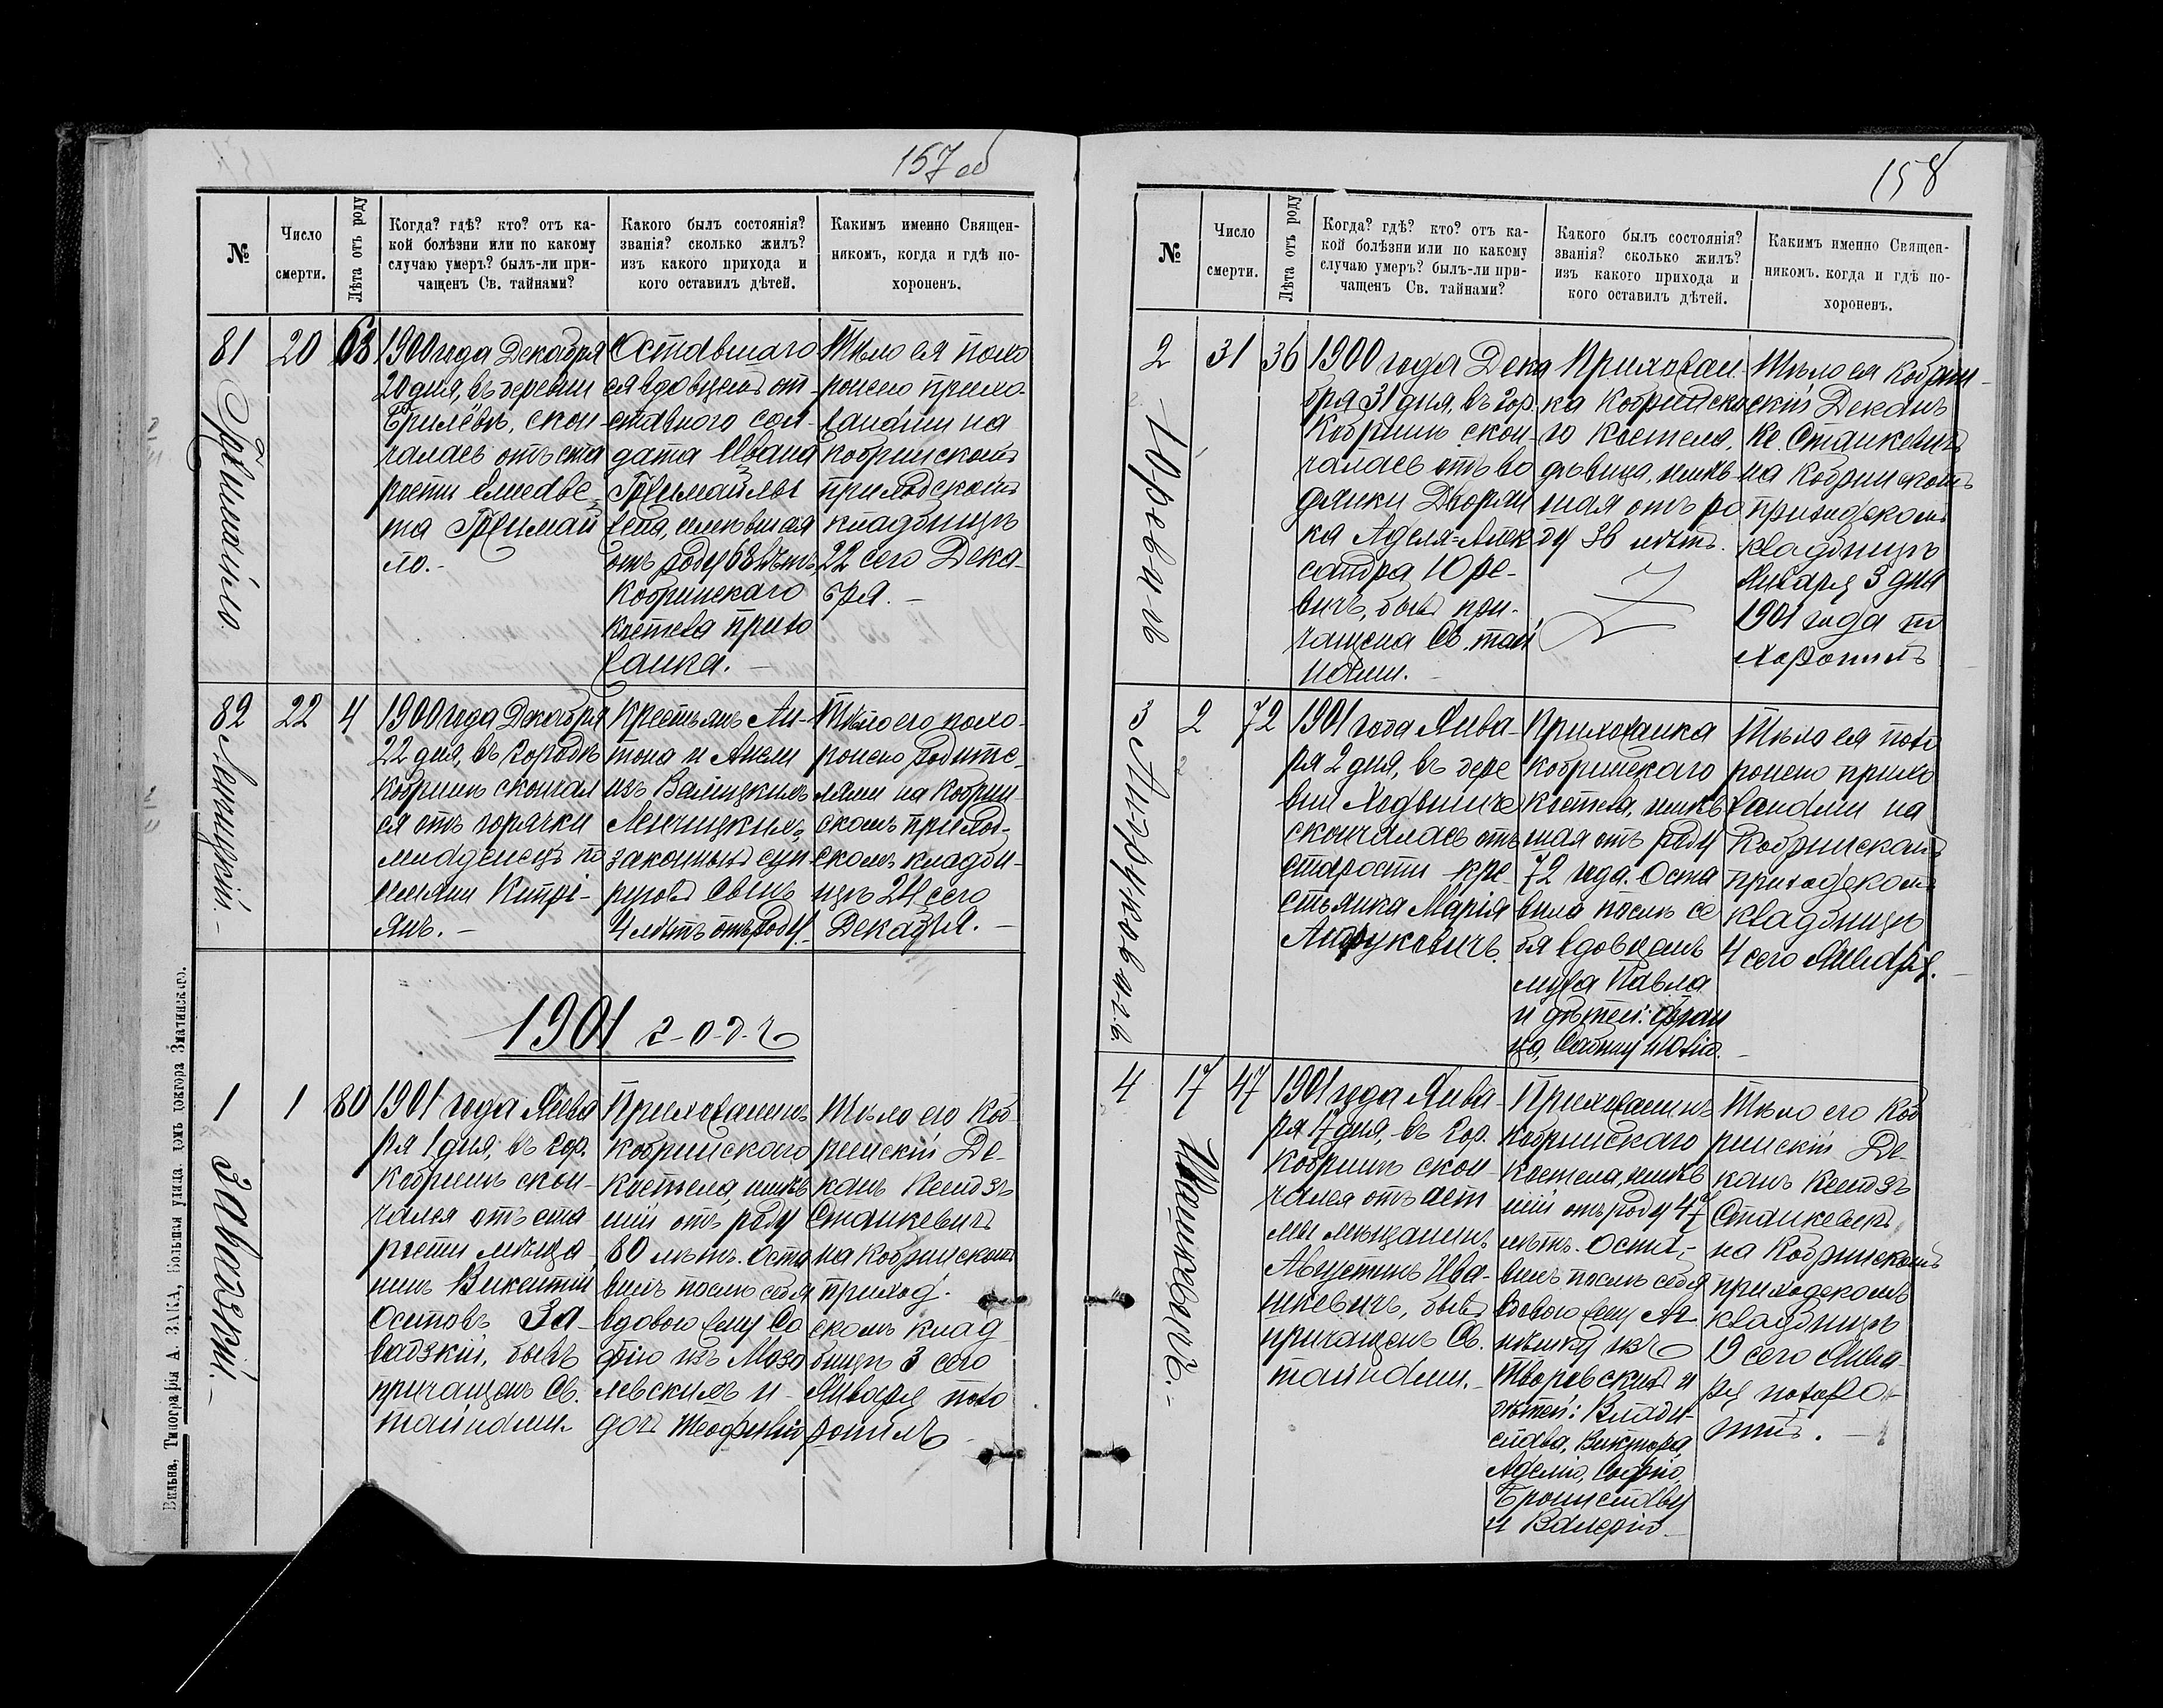 157 об
№
Число
смерти.
Лѣта отъ роду
Когда? гдѣ? кто? отъ ка-
кой болѣзни или по какому
случаю умеръ? былъ-ли при-
чащенъ Св. тайнами?
Какого былъ состоянія?
званія? сколько жилъ?
изъ какого прихода и
кого оставилъ дѣтей.
Какимъ именно Священ-
никомъ, когда и гдѣ по-
хороненъ.
81
20
68
1900 года Декабря
20 дня, въ деревни
скон-
чалась отъ ста
рости
та
ло.-
Оставшаго
ся вдовцемъ от-
ставного сол-
дата Ивана
жена, имевшая
отъ роду 68 лѣтъ,
Кобринскаго
костела прихо
жанка.
Тѣло ея похо
ронено прихо-
жанами на
Кобринскомъ
приходскомъ
кладбищѣ
22 сего Дека-
бря.-
82
Ленчицкій.-
22
4
1900 года Декабря
22 дня, въ городѣ
Кобринѣ скончал
ся отъ горячки
младенецъ по
имени Кипрі-
янъ.-
Крестьянъ Ан-
тона и Анели
изъ Валицкихъ
Ленчицкихъ
законныхъ суп-
руговъ сынъ
4 лѣтъ отъ роду.
Тѣло его похо-
ронено родите-
лями на Кобрин-
скомъ приход-
скомъ кладби-
щѣ 24 сего
Декабря.-
1901 годъ
1
Завадзкій.-
1
80
1901 года Янва
ря 1 дня, въ гор.
Кобринѣ скон-
чался отъ ста
рости мѣща-
нинъ Викентій
За-
вадзкій, бывъ
причащенъ Св.
тайнами.
Прихожанинъ
Кобринскаго
Костела, имѣв
шій отъ роду
80 лѣтъ. Оста
вилъ послѣ себя
вдовою жену Со
фію изъ
и
дочь Теофилію
Тѣло его Коб-
ринскій Де-
канъ Ксендзъ
Станкевичъ
на Кобринскомъ
приход-
скомъ клад
бищѣ 3 сего
Января похо
ронилъ
Вильна, Типографія А. ЗАКА, Большая улица. домъ доктора Зматинскаго.
158
№
Число
смерти.
Лѣта отъ роду
Когда? гдѣ? кто? отъ ка-
кой болѣзни или по какому
случаю умеръ? былъ-ли при-
чащенъ Св. тайнами?
Какого былъ состоянія?
званія? сколько жилъ?
изъ какого прихода и
кого оставилъ дѣтей.
Какимъ именно Священ-
никомъ. когда и гдѣ по-
хороненъ.
2
Юревичъ
31
36
1900 года Дека
бря 31 дня, въ гор.
Кобринѣ скон-
чалась отъ во
дянки Дворян
ка Аделя=Алек
сандра Юре-
вичъ, бывъ при-
чащена Св. тай
нами.
Прихожан
ка Кобринска
го костела,
дѣвица, имѣв
шая отъ ро
ду 36 лѣтъ.
Тѣло ея Кобрин-
скій Деканъ
Кс. Станкевичъ
на Кобринскомъ
приходскомъ
кладбищѣ
Января 3 дня
1901 года по
хоронилъ
3
Андрукевичъ
2
72
1901 года Янва-
ря 2 дня, въ дере
вни
скончалась отъ
старости кре-
стьянка Марія
Андрукевичъ.
Прихожанка
Кобринскаго
Костела, имѣв
шая отъ роду
72 года. Оста
вила послѣ се
бя вдовцемъ
мужа Павла
и дѣтей: Фран
ца,
Тѣло ея похо
ронено прихо
жанами на
Кобринскомъ
приходскомъ
кладбищѣ
4 сего Января.
4
Ивашкевичъ.-
17
47
1901 года Янва-
ря 17 дня, въ гор.
Кобринѣ скон-
чался отъ аст
мы мѣщанинъ
Августинъ Ива-
шкевичъ, бывъ
причащенъ Св.
тайнами.
Прихожанинъ
Кобринскаго
Костела, имѣв
шій отъ роду 47
лѣтъ. Оста-
вилъ послѣ себя
вдовою жену
изъ
и
дѣтей: Влади-
слава, Виктора,
Аделію, Софію,
Брониславу
и Валерію
Тѣло его Коб
ринскій Де-
канъ Ксендзъ
Станкевичъ
на Кобринскомъ
приходскомъ
кладбищѣ
19 сего Янва-
ря похоро-
нилъ.